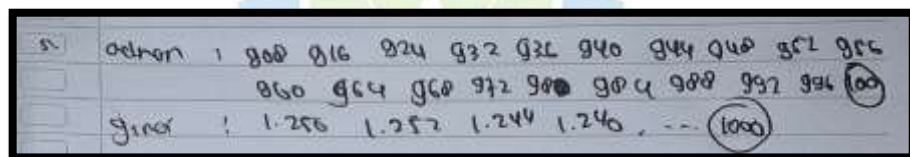 adnan : 908 916 924 932 936 940 944 948 952 956
960 964 968 972 980 984 988 992 996 1000
: 1.256 1.252 1.244 1.240, ... 1000